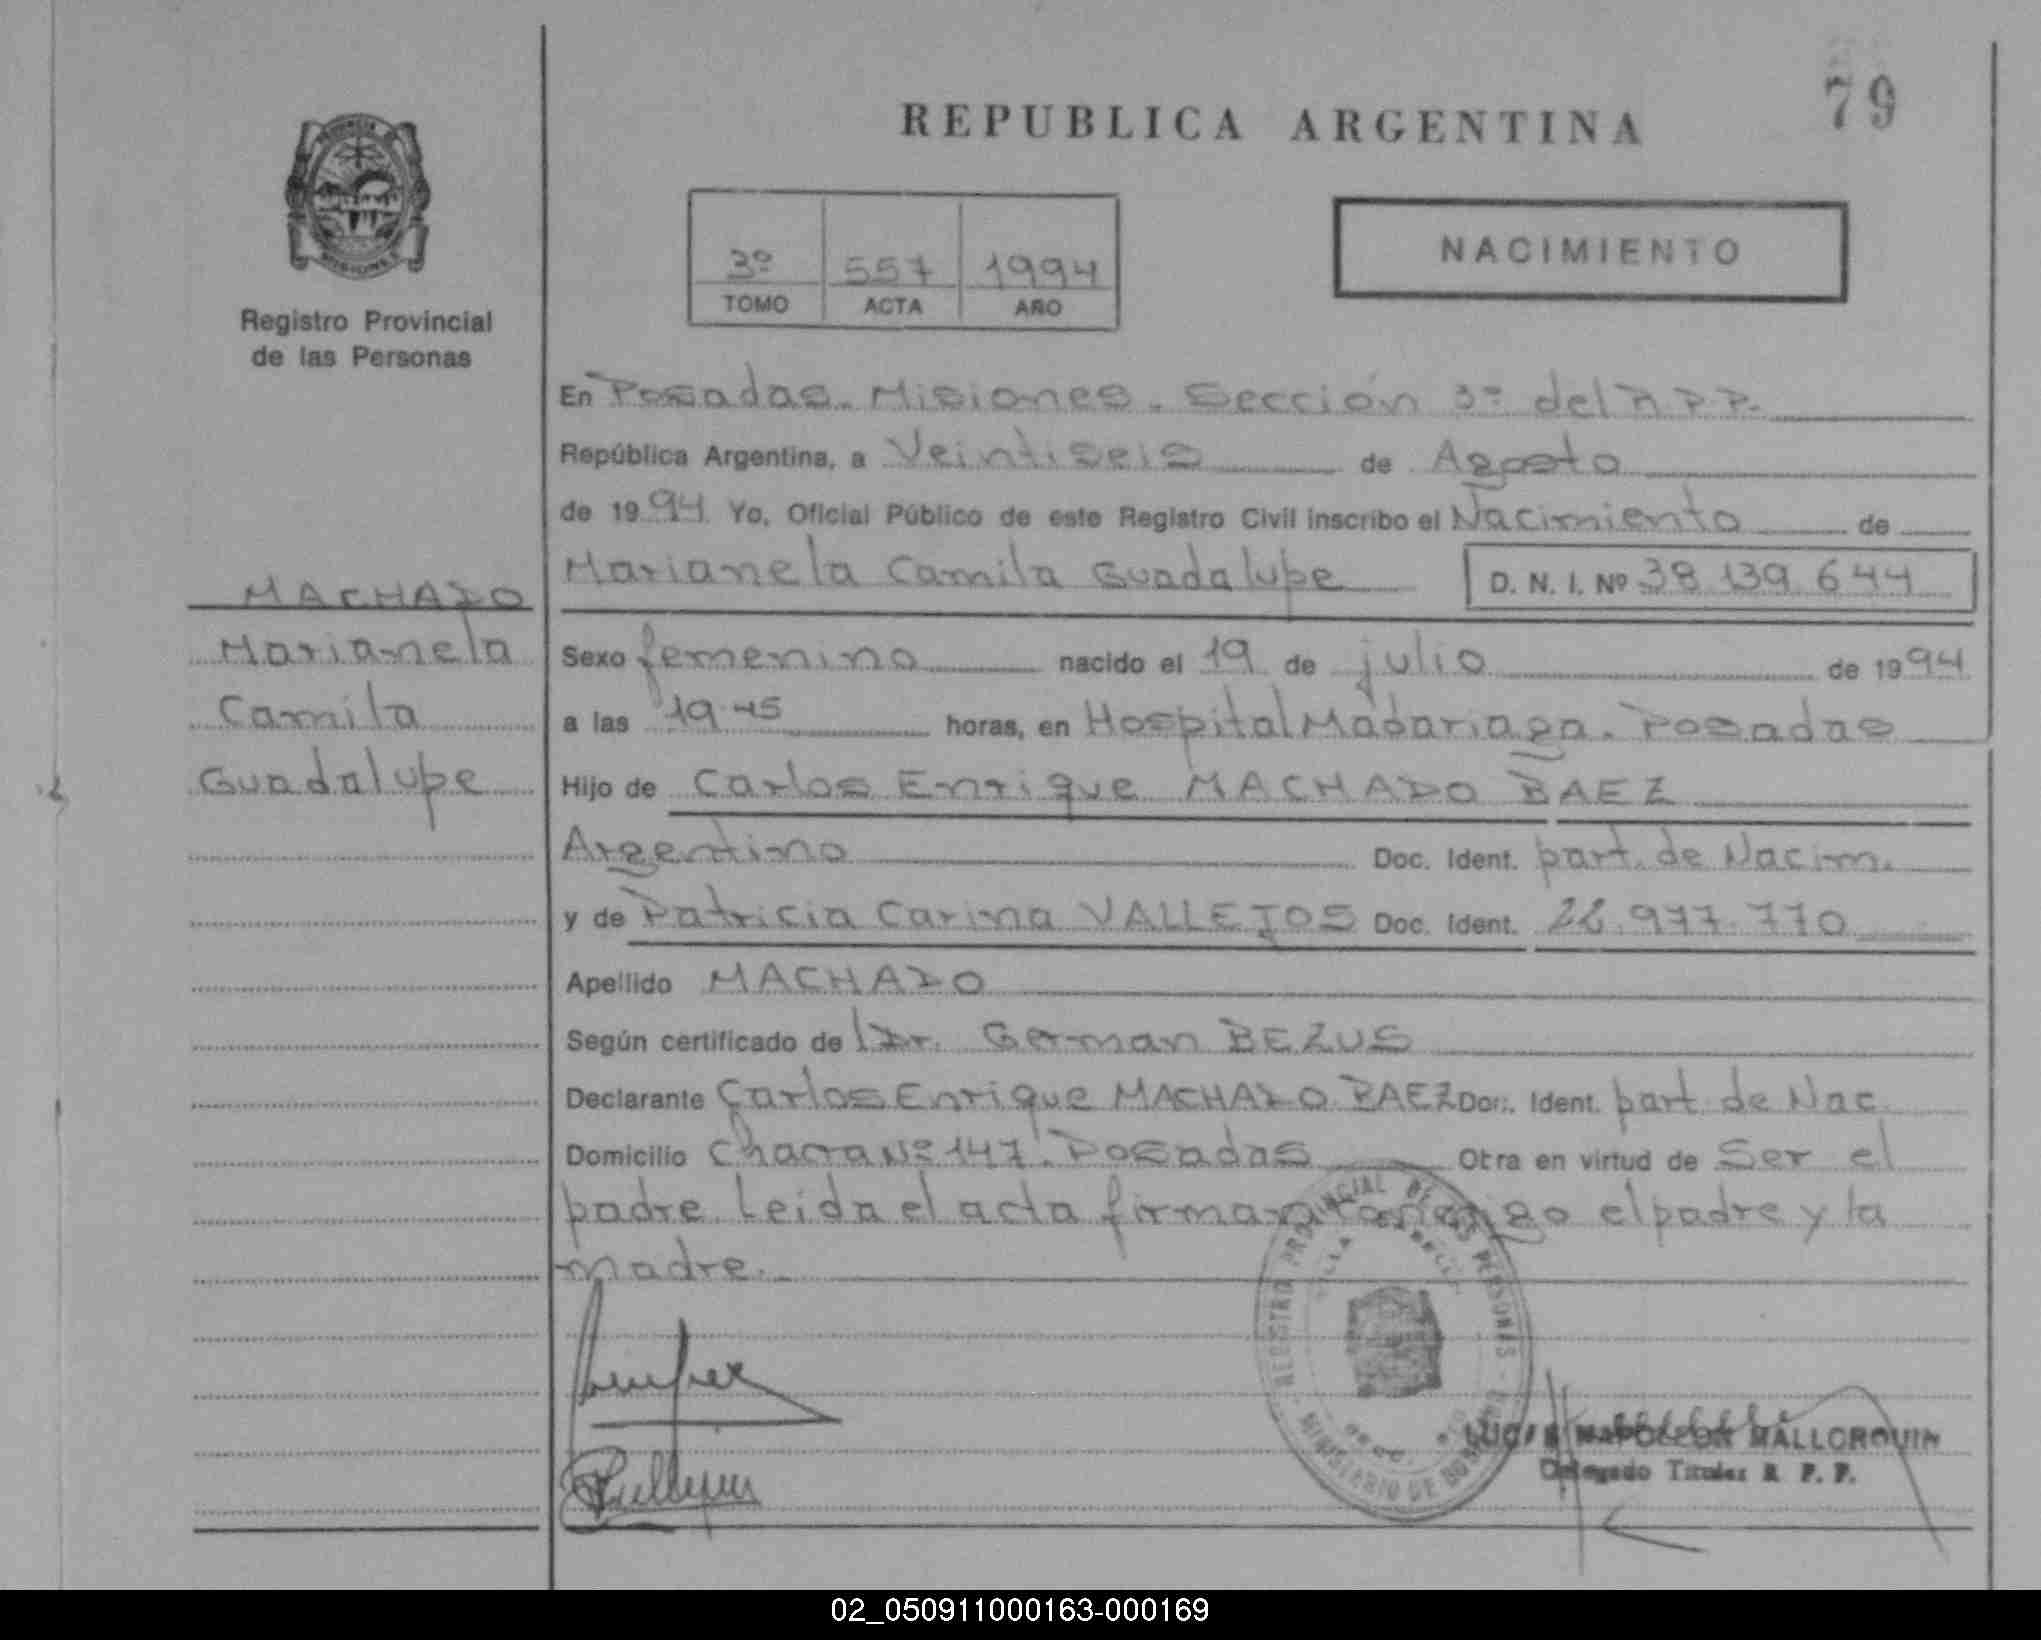 79
REPUBLICA ARGENTINA
PROVINCIA DE
MISIONES
Registro Provincial
de las Personas
3º 557 1994
TOMO ACTA AÑO
NACIMIENTO
En Posadas. Misiones. Sección 3ª del R.P.P.
República Argentina, a Veintiseis de Agosto
de 1994 Yo, Oficial Público de este Registro Civil inscribo el Nacimiento de
Marianela Camila Guadalupe D. N. I. Nº 38.139.644
MACHADO
Marianela
Camila
Guadalupe
Sexo femenino nacido el 19 de julio de 1994
a las 19.45 horas, en Hospital Madariaga. Posadas
Hijo de Carlos Enrique MACHADO BAEZ
Argentino Doc. Ident. part. de Nacim.
y de Patricia Carina VALLEJOS Doc. Ident. 22.977.770
Apellido MACHADO
Según certificado de Dr. German BEZUS
Declarante Carlos Enrique MACHADO BAEZ Doc. Ident. part. de Nac.
Domicilio Chacra Nº 147. Posadas Otra en virtud de Ser el
padre Leida el acta firman conmigo el padre y la
madre.
REGISTRO PROVINCIAL DE LAS PERSONAS
MINISTERIO DE GOBIERNO
NAPOLEON MALLORQUIN
Delegado Titular R. P. P.
02_050911000163-000169